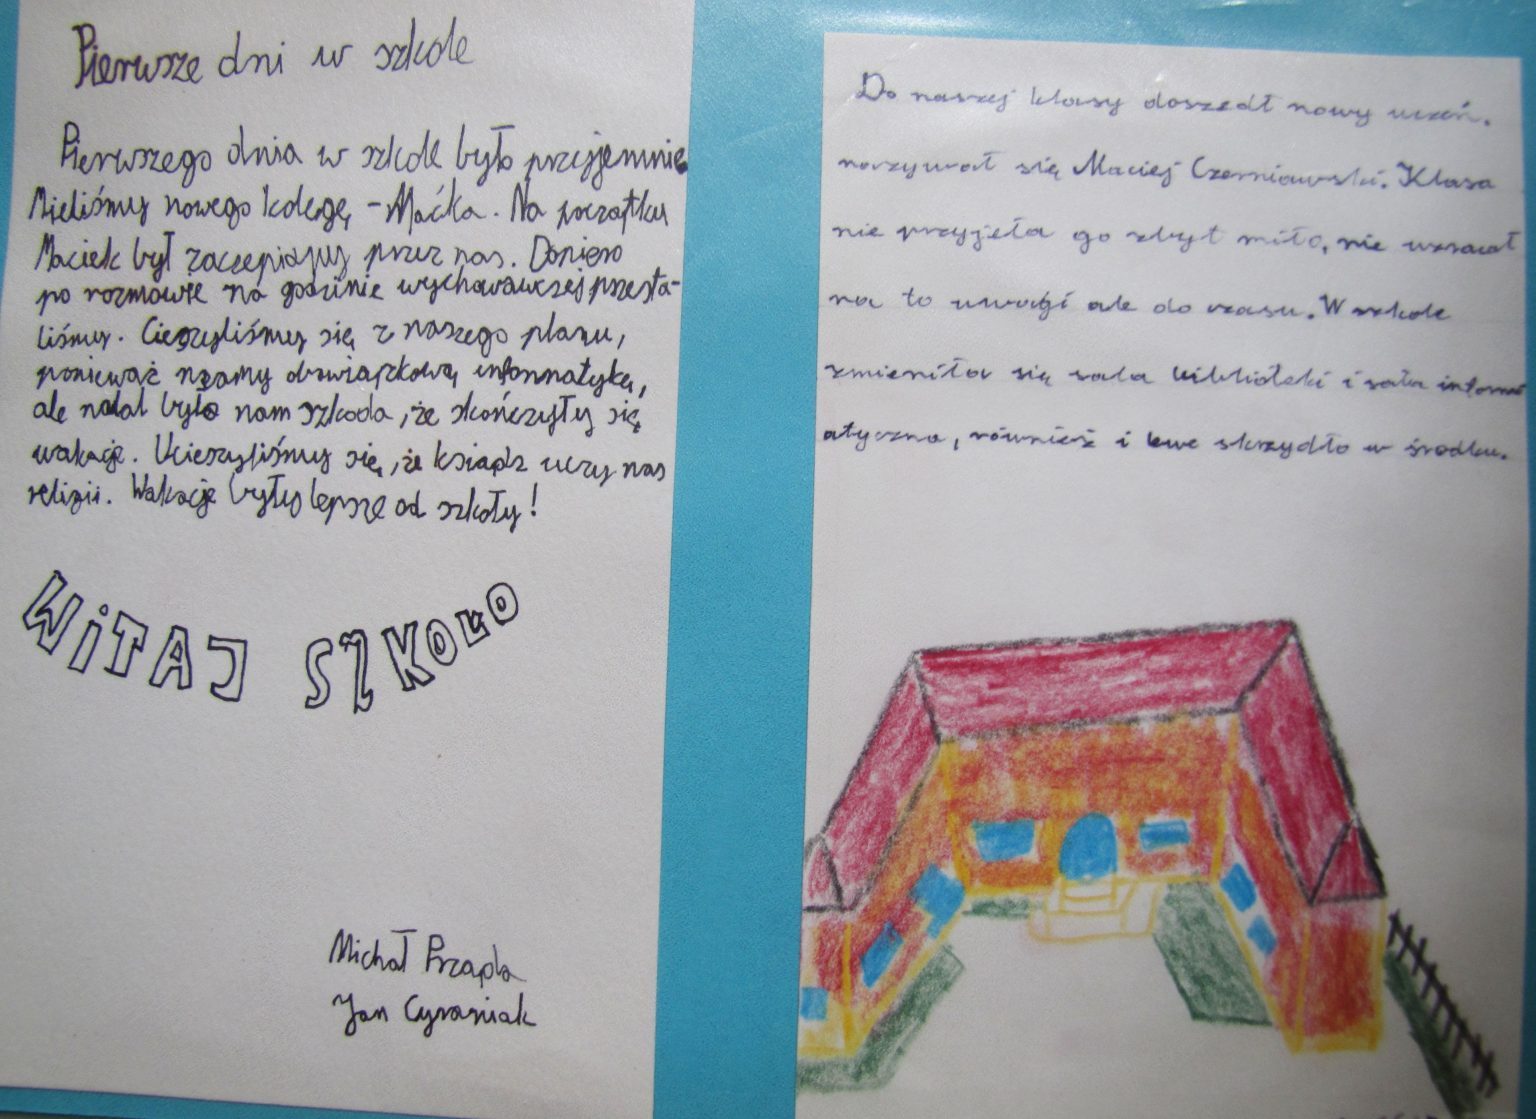 Pierwsze dni w szkole
Pierwszego dnia w szkole było przyjemnie
Mieliśmy nowego kolegę - Maćka. Na początku
Maciek był zaczepiany przez nas. Dopiero
po rozmowie na godzinie wychowawczej przesta-
liśmy. Cieszyliśmy się z naszego planu,
ponieważ mamy obowiązkową informatykę,
ale nadal było nam szkoda, że skończyły się
wakacje. Ucieszyliśmy się, że ksiądz uczy nas
religii. Wakacje były lepsze od szkoły!
WiTAJ SZKOŁO
Michał Przapla
Jan Cyraniak
Do naszej klasy doszedł nowy uczeń.
nazywał się Maciej Czerniawski. Klasa
nie przyjęła go zbyt miło, nie wzracał
na to uwagi ale do czasu. W szkole
zmieniła się sala biblioteki i sala inform
atyczna, również i lewe skrzydło w środku.